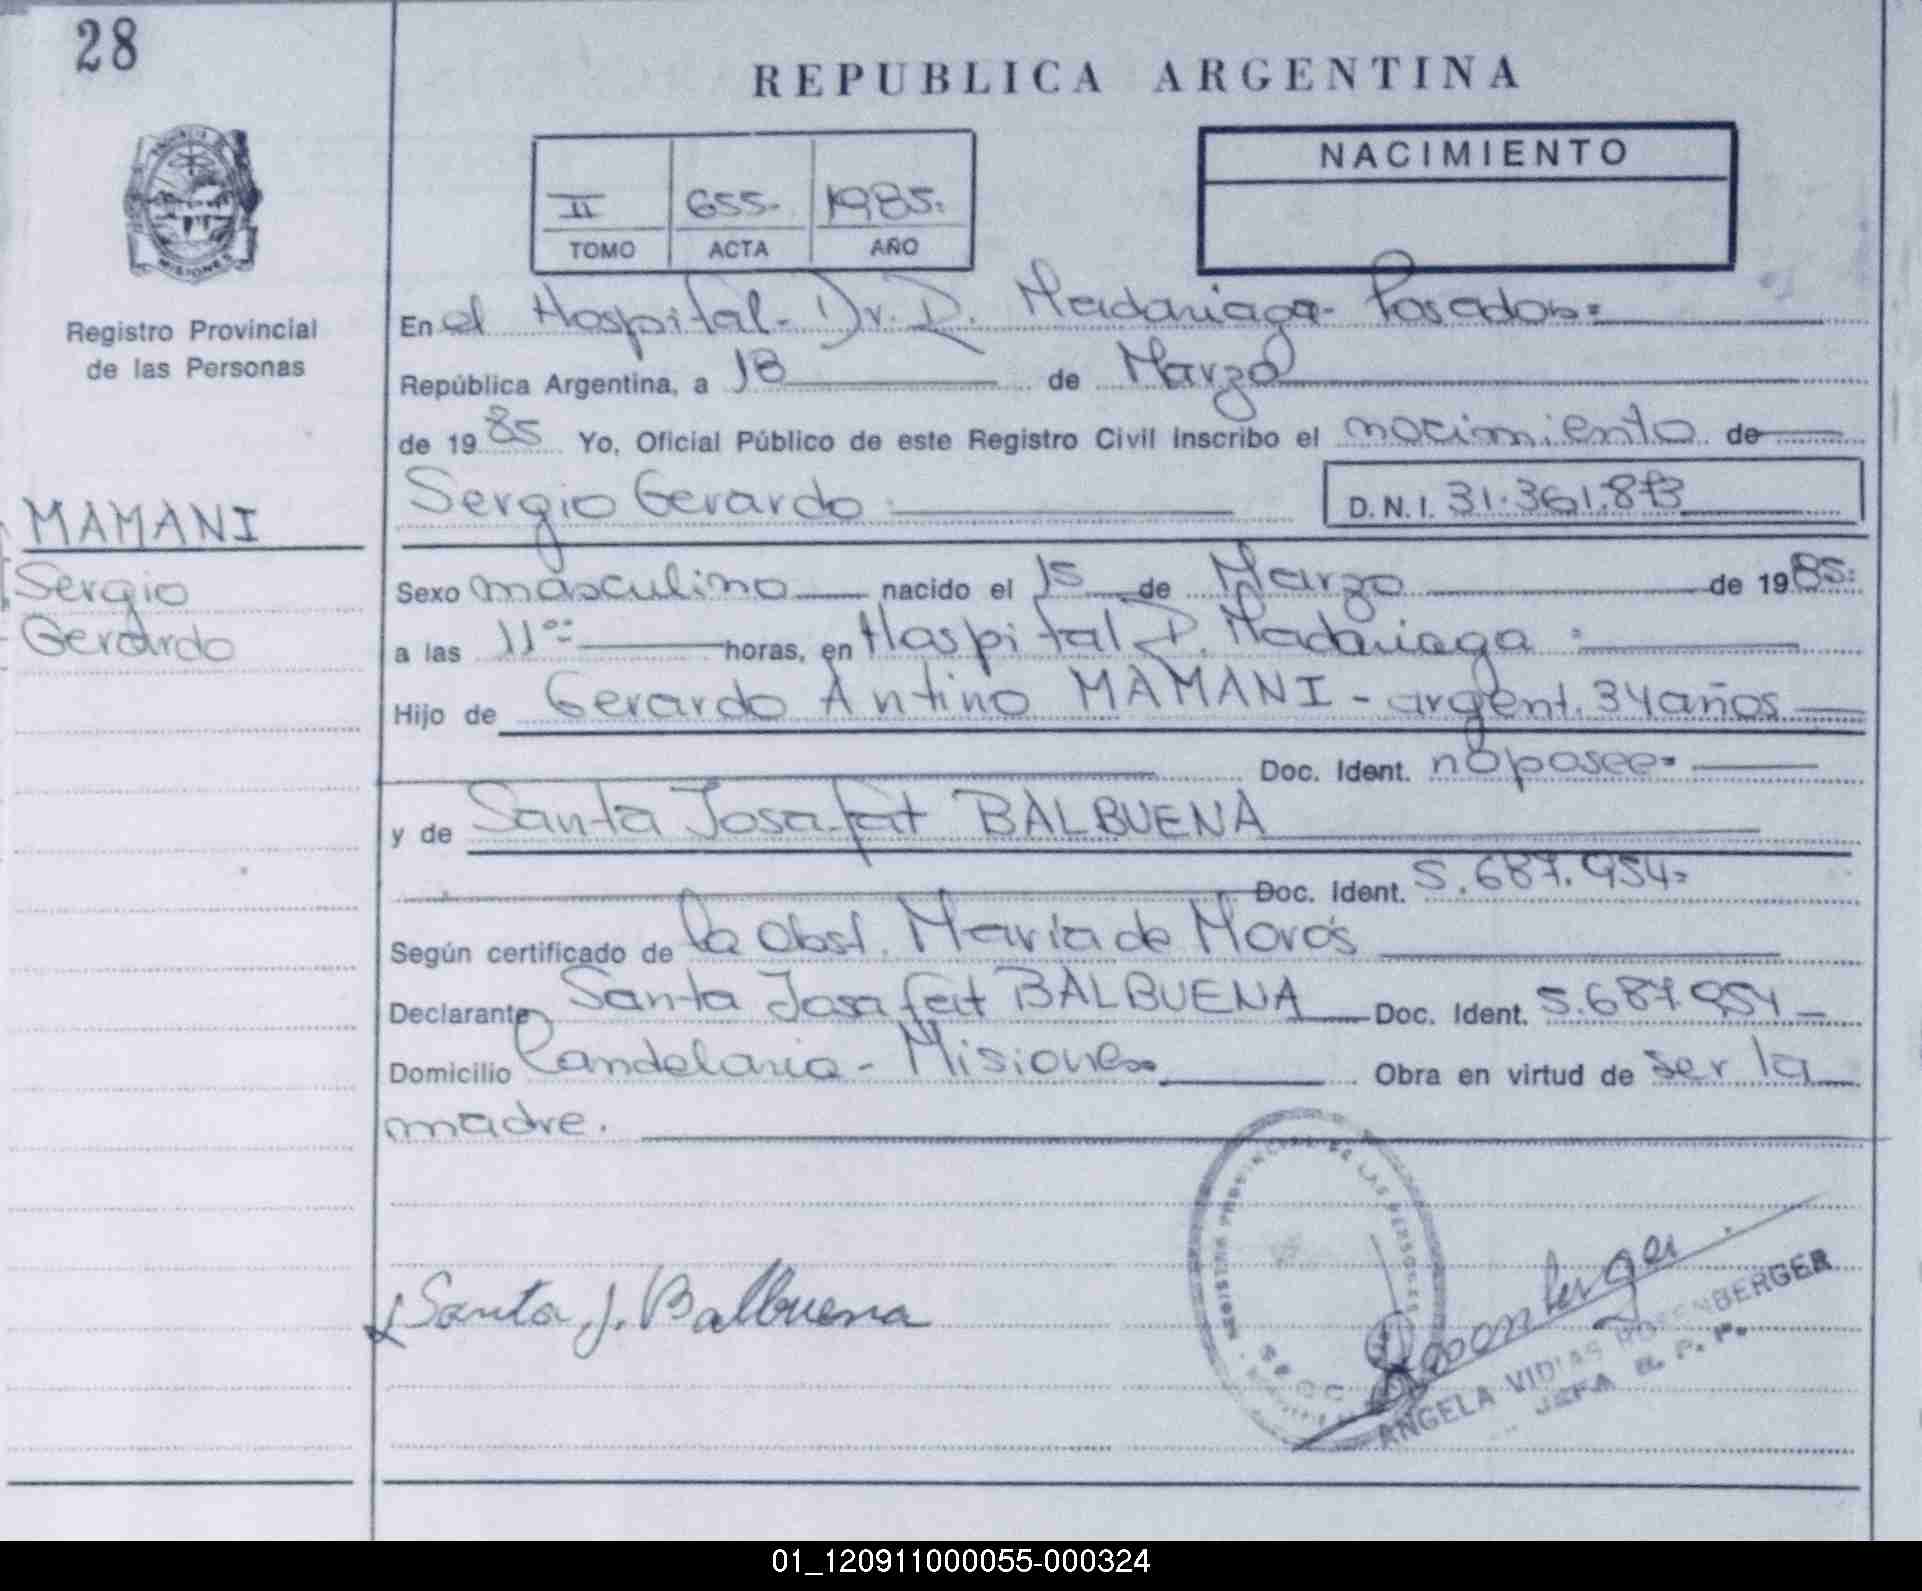 28
REPUBLICA ARGENTINA
MISIONES
Registro Provincial
de las Personas
II 655- 1985.
TOMO ACTA AÑO
NACIMIENTO
En el Hospital- Dr. R. Madariaga- Posadas=
República Argentina, a 18 de Marzo
de 1985 Yo, Oficial Público de este Registro Civil Inscribo el nacimiento de
Sergio Gerardo D.N.I. 31.361.873
MAMANI
Sergio
Gerardo
Sexo masculino nacido el 15 de Marzo de 1985:
a las 11 horas, en Hospital R. Madariaga
Hijo de Gerardo Antino MAMANI - argent. 34 años
Doc. Ident. no posee=
y de Santa Josafat BALBUENA
Doc. Ident. 5.687.954=
Según certificado de la Obst. María de Morós
Declarante Santa Josafat BALBUENA Doc. Ident. 5.687.954
Domicilio Candelaria - Misiones Obra en virtud de ser la
madre.
REGISTRO PROVINCIAL DE LAS PERSONAS
Santa J. Balbuena
ANGELA VIDIAS
JEFA R. P. P.
01_120911000055-000324